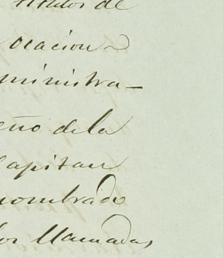 titulos de
ocacion
ministra-
eño de la
Capitan
nombrado
los llamados